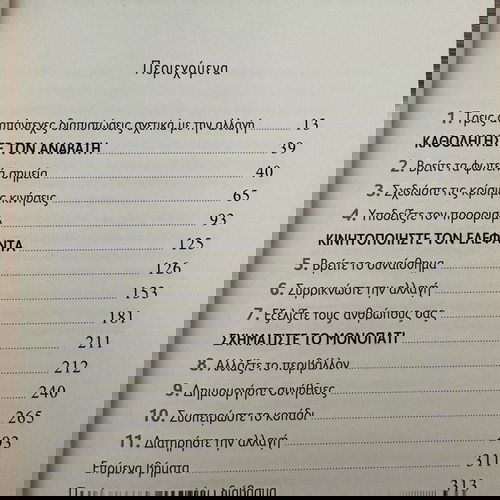 Περιεχόμενα
1. Τρεις απάντεχες διαπιστώσεις σχετικά με την αλλαγή 13
ΚΑΘΟΔΗΓΗΣΤΕ ΤΟΝ ΑΝΑΒΑΤΗ 39
2. Βρείτε τα φωτεινά σημεία 40
3. Σχεδιάστε τις κρίσιμες κινήσεις 65
4. Υποδείξετε τον προορισμό 93
ΚΙΝΗΤΟΠΟΙΗΣΤΕ ΤΟΝ ΕΛΕΦΑΝΤΑ 125
5. Βρείτε το συναίσθημα 126
6. Συρρικνώστε την αλλαγή 153
7. Εξελίξτε τους ανθρώπους σας 181
ΣΧΗΜΑΤΙΣΤΕ ΤΟ ΜΟΝΟΠΑΤΙ 211
8. Αλλάξτε το περιβάλλον 212
9. Δημιουργήστε συνήθειες 240
10. Συσπειρώστε το κοπάδι 265
11. Διατηρήστε την αλλαγή 93
Επόμενα βήματα 311
διάβασμα 313